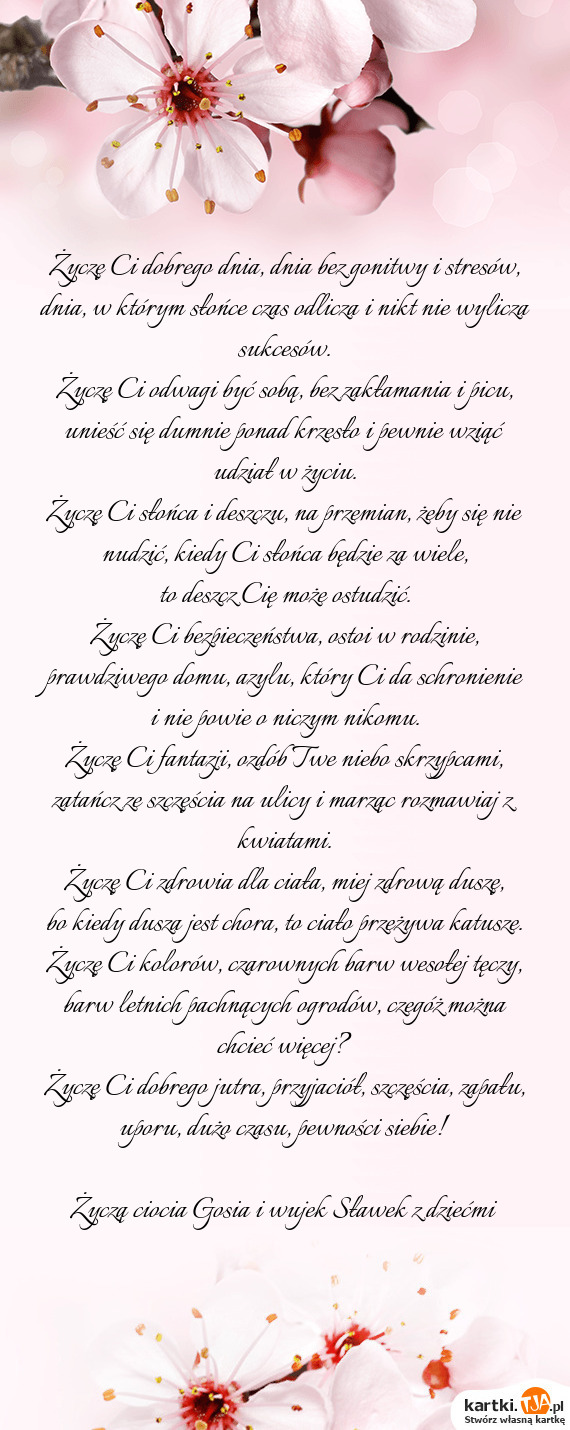 Życzę Ci dobrego dnia, dnia bez gonitwy i stresów,
dnia, w którym słońce czas odlicza i nikt nie wylicza
sukcesów.
Życzę Ci odwagi być sobą, bez zakłamania i picu,
unieść się dumnie ponad krzesło i pewnie wziąć
udział w życiu.
Życzę Ci słońca i deszczu, na przemian, żeby się nie
nudzić, kiedy Ci słońca będzie za wiele,
to deszcz Cię może ostudzić.
Życzę Ci bezpieczeństwa, ostoi w rodzinie,
prawdziwego domu, azylu, który Ci da schronienie
i nie powie o niczym nikomu.
Życzę Ci fantazji, ozdób Twe niebo skrzypcami,
zatańcz ze szczęścia na ulicy i marząc rozmawiaj z
kwiatami.
Życzę Ci zdrowia dla ciała, miej zdrową duszę,
bo kiedy dusza jest chora, to ciało przeżywa katusze.
Życzę Ci kolorów, czarownych barw wesołej tęczy,
barw letnich pachnących ogrodów, czegóż można
chcieć więcej?
Życzę Ci dobrego jutra, przyjaciół, szczęścia, zapału,
uporu, dużo czasu, pewności siebie!
Życzą ciocia Gosia i wujek Sławek z dziećmi
kartki.TJA.pl
Stwórz własną kartkę